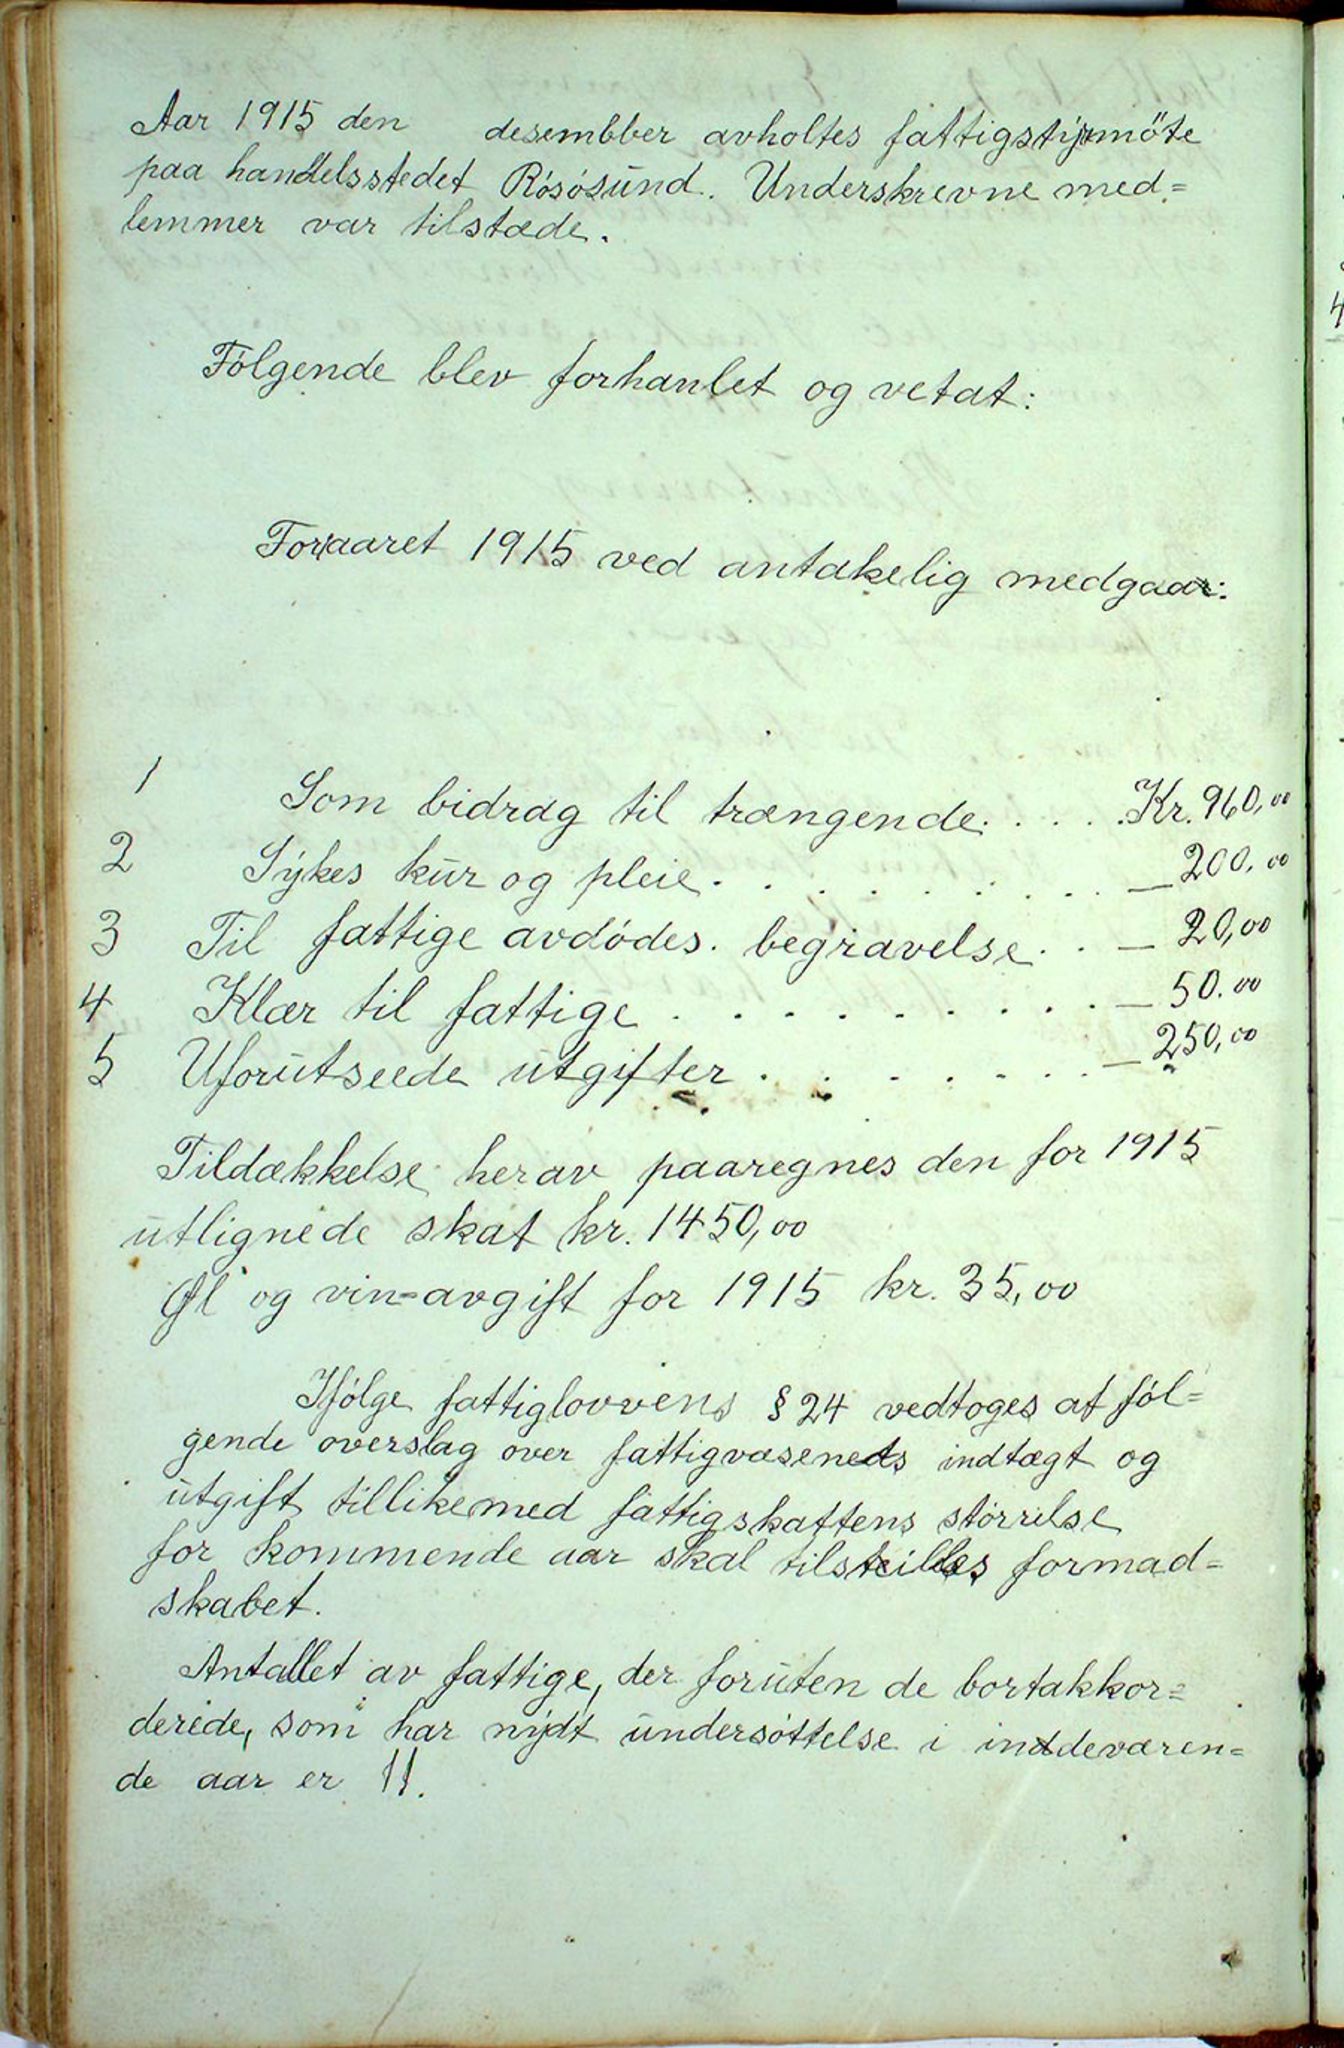 Aar 1915 den desembber avholtes fattigstyrmöte
paa handelsstedet Rósósund. Underskrevne med=
lemmer var tilstæde.
Fólgende blev forhanlet og vetat:
For aaret 1915 ved antakelig medgaar:
1 Som bidrag til trængende. . . . . Kr. 960,00
2 Sykes kur og pleie. . . . . . . . . — 200,00
3 Til fattige avdódes. begravelse. . — 20,00
4 Klær til fattige . . . . . . . . . — 50.00
5 Uforutseede utgifter . . . . . . . — 250,00
Tildækkelse herav paaregnes den for 1915
utlignede skat kr. 1450,00
Øl og vin=avgift for 1915 kr. 35,00
Ifólge fattiglovvens § 24 vedtoges at fól=
gende overslag over fattigvæsenets indtægt og
utgift tillikemed fattigskattens störrelse
for kommende aar skal tilstilles formad=
skabet.
Antallet av fattige, der foruten de bortakkor=
derede, som har nydt undersóttelse i inddeværen=
de aar er 11.